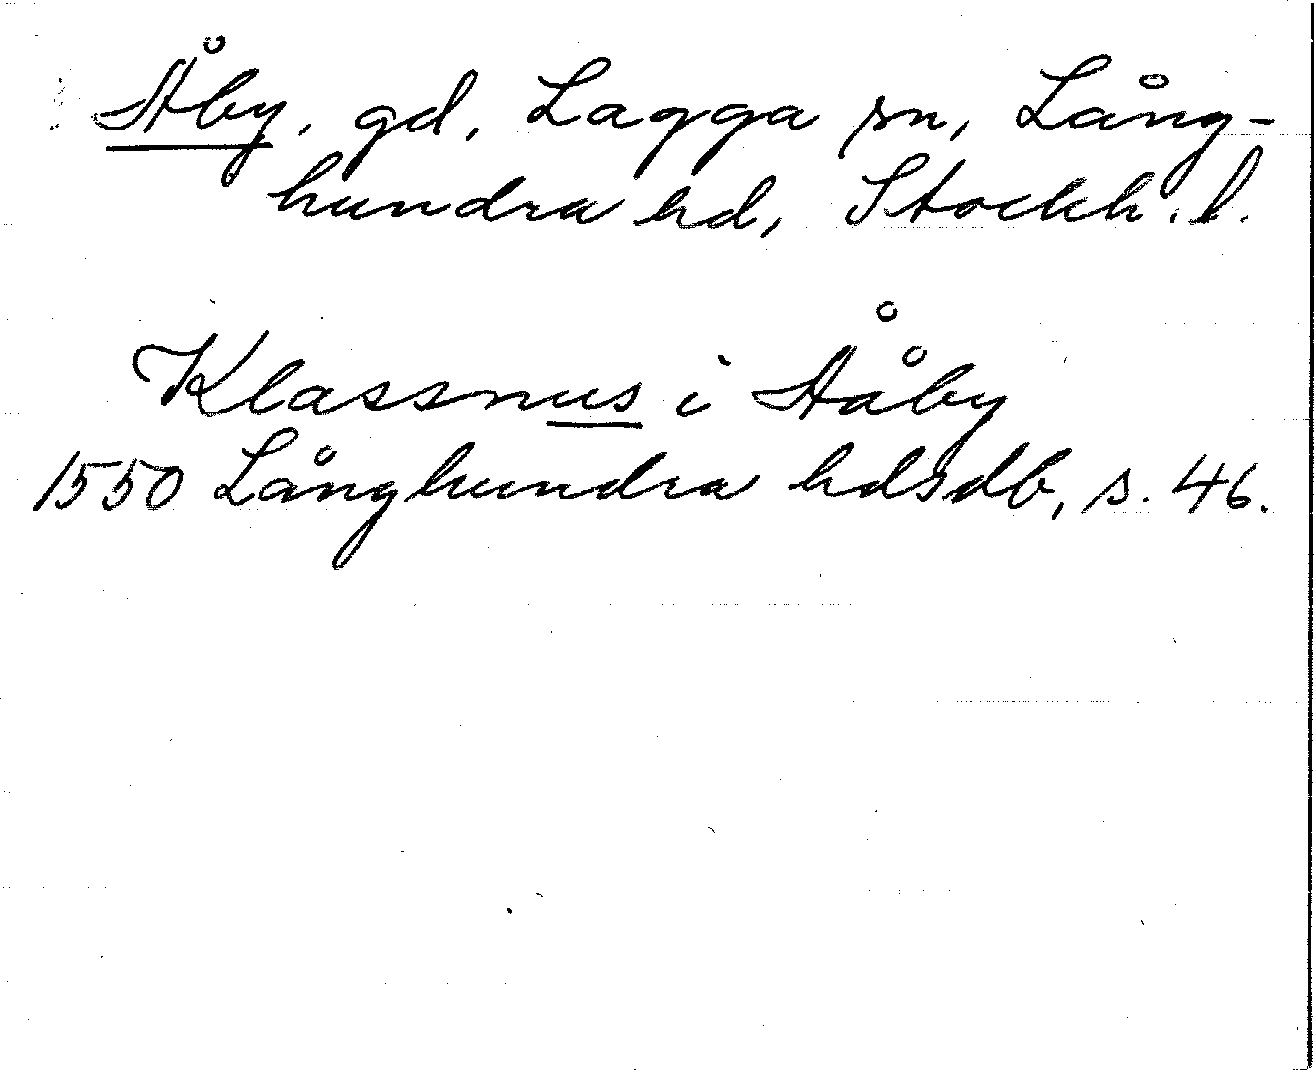 Åby, gd, Lagga sn, Lång-
hundra hd, Stockh. l.
Klassnus i Ååby
1550 Långhundra hdsdb, s. 46.